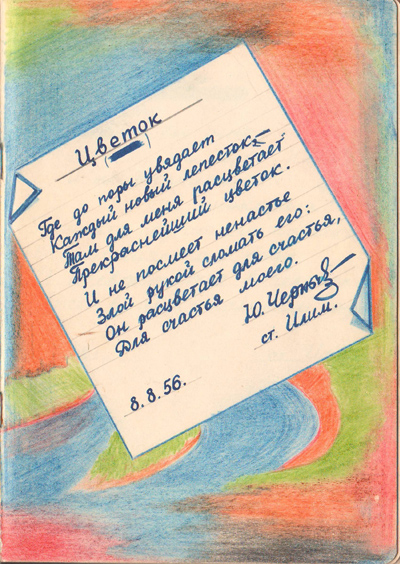 Цветок
Где до поры увядает
Каждый новый лепесток –
Там для меня расцветает
Прекраснейший цветок.
И не посмеет ненастье
Злой рукой сломать его:
Он расцветает для счастья,
Для счастья моего.
Ю.
ст. Илим.
8.8.56.